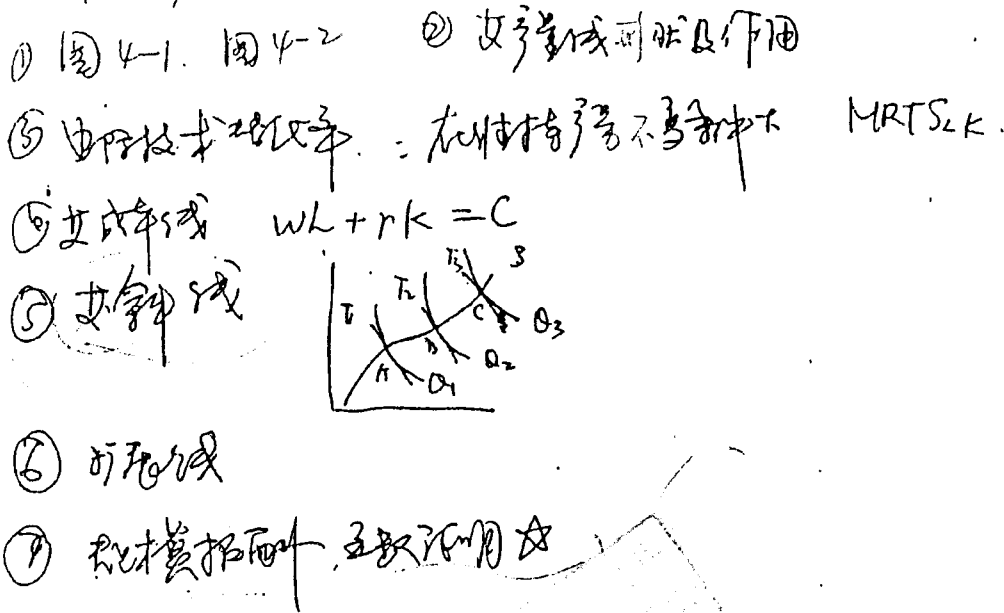 ① 图4-1. 图4-2 ② 等产量线形状及作用
③ 边际技术替代率：在维持产量不变条件下 MRTS_LK.
④ 等成本线 wL+rK=C
⑤ 等斜线
T1 T2 T3 S
A B C
Q1 Q2 Q3
⑥ 扩展线
⑦ 规模报酬